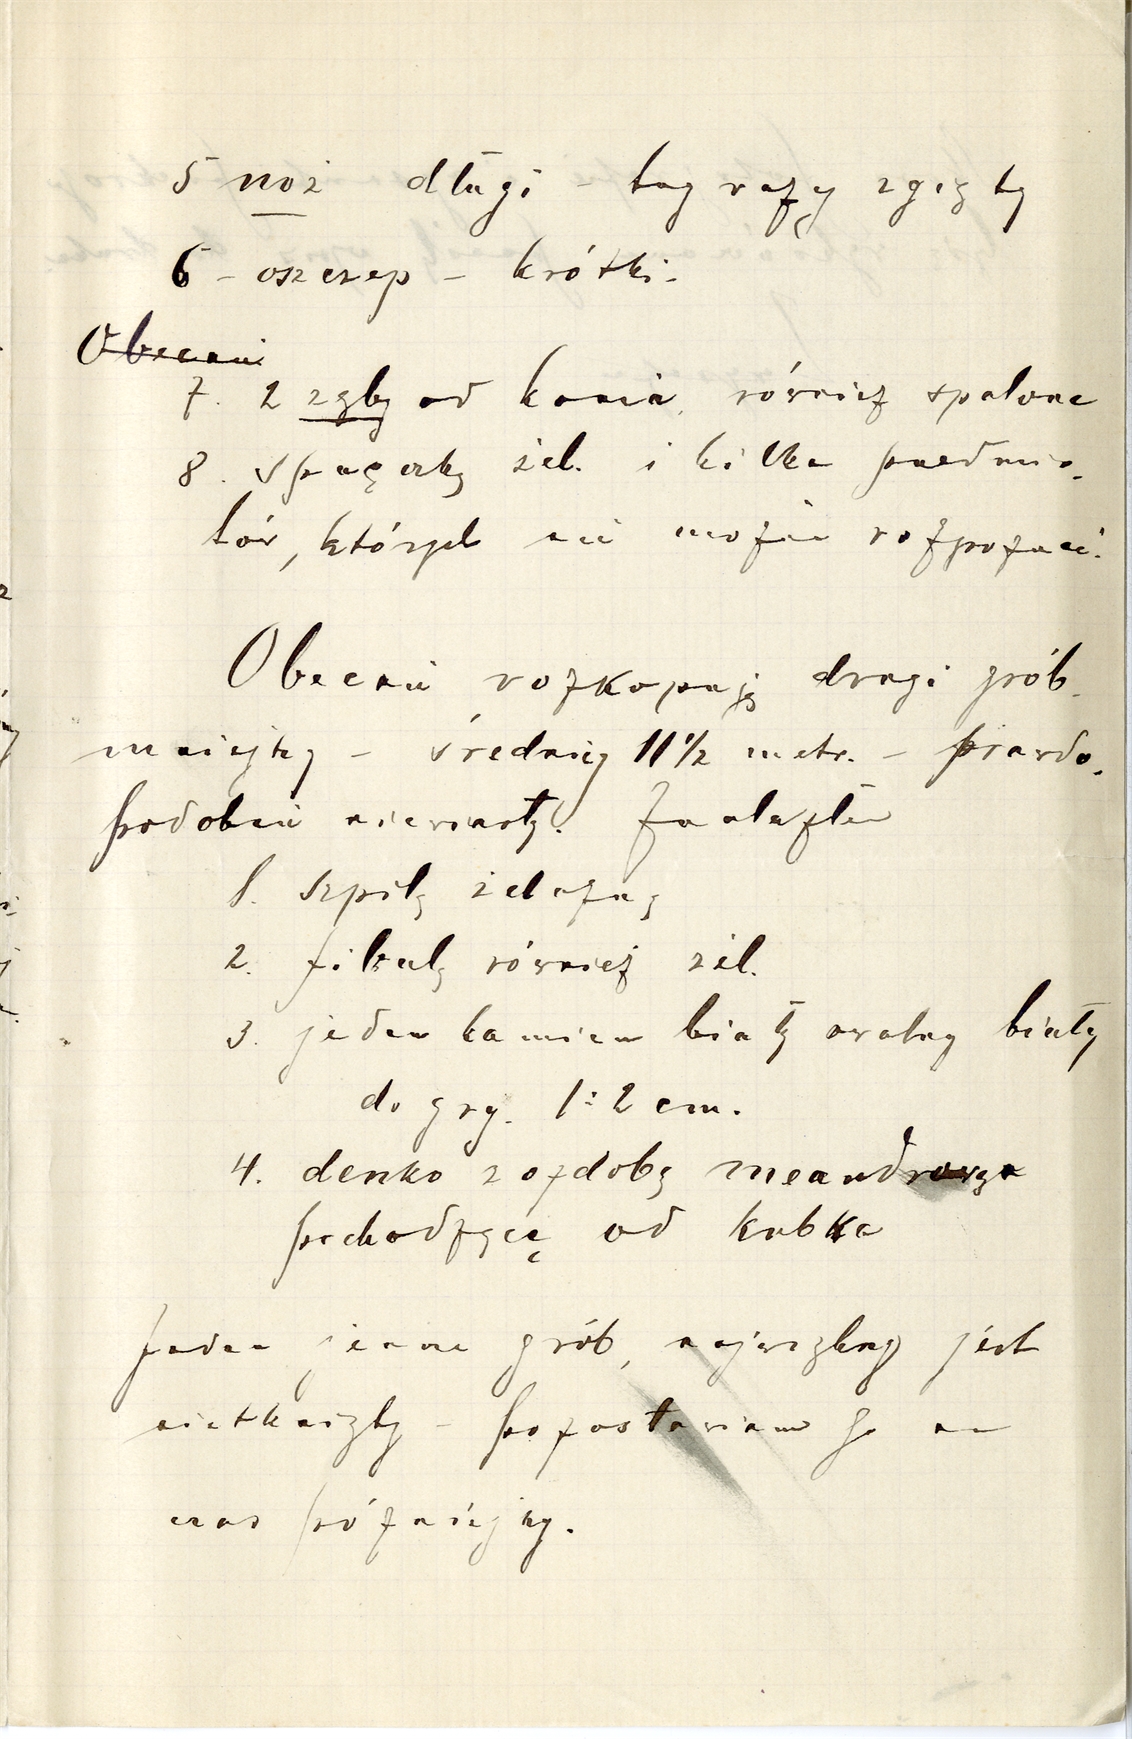 5 noż długi - trzy razy zgięty
6 - oszczep - krótki.
Obecnie
7. 2 zęby od konia, również spalone
8. sprzączkę żel. i kilka przedmio-
tów, których nie można rozpoznać.
Obecnie rozkopuję drugi grób
mniejszy - średnicy 11 1/2 metr. - prawdo-
podobnie niewiasty. Znalazłem
1. szpilę żelazną
2. fibulę również żel.
3. jeden kamien biały owalny biały
do gry. 1:2 cm.
4. denko z ozdobą meandrową
pochodzące od kubka
Jeden jeszcze grób, największy jest
nietknięty - pozostawiam go na
czas późniejszy.